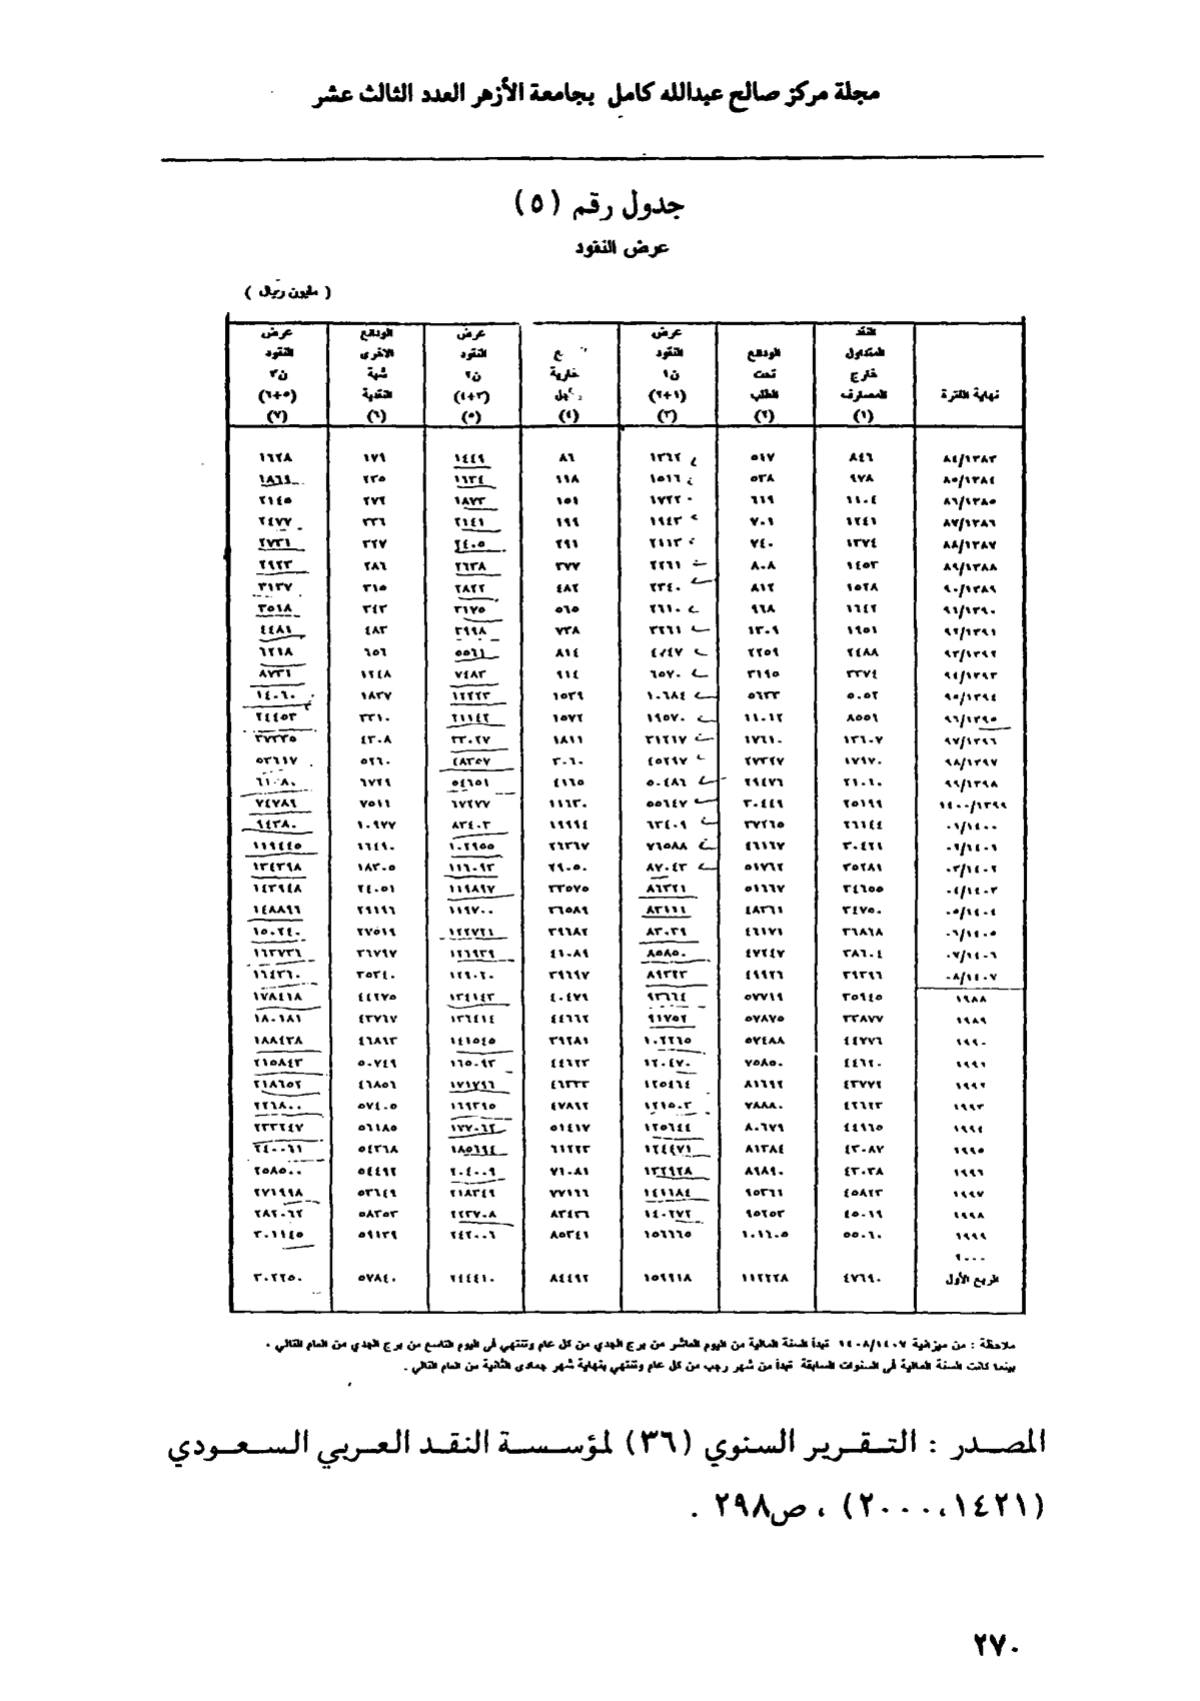 مجلة مركز صالح عبدالله كامل بجامعة الأزهر العدد الثالث عشر
جدول رقم (٥)
عرض النقود
( مليون ريال )
نهاية الفترة النقد المتداول خارج المصارف (١) الودائع تحت الطلب (٢) عرض النقود ن١ (١+٢) (٣) (٤) عرض النقود ن٢ (٣+٤) (٥) الودائع الاخرى شبة النقدية (٦) عرض النقود ن٣ (٥+٦) (٧)
٨٤/١٣٨٣ ٨٤٦ ٥١٧ ١٣٦٢ ٨٦ ١٤٤٩ ١٧٩ ١٦٢٨
٨٥/١٣٨٤ ٩٧٨ ٥٣٨ ١٥١٦ ١١٨ ١٦٣٤ ٢٣٠ ١٨٦٤
٨٦/١٣٨٥ ١١٠٤ ٦١٩ ١٧٢٢ ١٥١ ١٨٧٣ ٢٧٢ ٢١٤٥
٨٧/١٣٨٦ ١٢٤١ ٧٠١ ١٩٤٣ ١٩٩ ٢١٤١ ٣٣٦ ٢٤٧٧
٨٨/١٣٨٧ ١٣٧٤ ٧٤٠ ٢١١٣ ٢٩١ ٢٤٠٥ ٣٢٧ ٢٧٣١
٨٩/١٣٨٨ ١٤٥٣ ٨٠٨ ٢٢٦١ ٣٧٧ ٢٦٣٨ ٢٨٦ ٢٩٢٣
٩٠/١٣٨٩ ١٥٢٨ ٨١٢ ٢٣٤٠ ٤٨٢ ٢٨٢٢ ٣١٥ ٣١٣٧
٩١/١٣٩٠ ١٦٤٢ ٩٦٨ ٢٦١٠ ٥٦٥ ٣١٧٥ ٣٤٣ ٣٥١٨
٩٢/١٣٩١ ١٩٥١ ١٣٠٩ ٣٢٦١ ٧٣٨ ٣٩٩٨ ٤٨٣ ٤٤٨١
٩٣/١٣٩٢ ٢٤٨٨ ٢٢٥٩ ٤٧٤٧ ٨١٤ ٥٥٦١ ٦٥٦ ٦٢١٨
٩٤/١٣٩٣ ٣٣٧٤ ٣١٩٥ ٦٥٧٠ ٩١٤ ٧٤٨٣ ١٢٤٨ ٨٧٣١
٩٥/١٣٩٤ ٥٠٥٢ ٥٦٣٣ ١٠٦٨٤ ١٥٣٩ ١٢٢٢٣ ١٨٣٧ ١٤٠٦٠
٩٦/١٣٩٥ ٨٥٥٦ ١١٠١٢ ١٩٥٧٠ ١٥٧٢ ٢١١٤٢ ٣٣١٠ ٢٤٤٥٣
٩٧/١٣٩٦ ١٣٦٠٧ ١٧٦١٠ ٣١٢١٧ ١٨١١ ٣٣٠٢٧ ٤٣٠٨ ٣٧٣٣٥
٩٨/١٣٩٧ ١٧٩٧٠ ٢٧٣٢٧ ٤٥٢٩٧ ٣٠٦٠ ٤٨٣٥٧ ٥٢٦٠ ٥٣٦١٧
٩٩/١٣٩٨ ٢١٠١٠ ٢٩٤٧٦ ٥٠٤٨٦ ٤١٦٥ ٥٤٦٥١ ٦٧٢٩
١٤٠٠/١٣٩٩ ٢٥١٩٩ ٣٠٤٤٩ ٥٥٦٤٧ ١١٦٣٠ ٦٧٢٧٧ ٧٥١١ ٧٤٧٨٩
٠١/١٤٠٠ ٢٦١٤٤ ٣٧٢٦٥ ٦٣٤٠٩ ١٩٩٩٤ ٨٣٤٠٣ ١٠٩٧٧ ٩٤٣٨٠
٠٢/١٤٠١ ٣٠٤٢١ ٤٦١٦٧ ٧٦٥٨٨ ٢٦٣٦٧ ١٠٢٩٥٥ ١٦٤٩٠ ١١٩٤٤٥
٠٣/١٤٠٢ ٣٥٢٨١ ٥١٧٦٢ ٨٧٠٤٣ ٢٩٠٥٠ ١١٦٠٩٣ ١٨٣٠٥ ١٣٤٣٩٨
٠٤/١٤٠٣ ٣٤٦٥٥ ٥١٦٦٧ ٨٦٣٢١ ٣٣٥٧٥ ١١٩٨٩٧ ٢٤٠٥١ ١٤٣٩٤٨
٠٥/١٤٠٤ ٣٤٧٥٠ ٤٨٣٦١ ٨٣١١١ ٣٦٥٨٩ ١١٩٧٠٠ ٢٩١٩٦ ١٤٨٨٩٦
٠٦/١٤٠٥ ٣٦٨٦٨ ٤٦١٧١ ٨٣٠٣٩ ٣٩٦٨٢ ١٢٢٧٢١ ٢٧٥١٩ ١٥٠٢٤٠
٠٧/١٤٠٦ ٣٨٦٠٤ ٤٧٢٤٧ ٨٥٨٥٠ ٤١٠٨٩ ١٢٦٩٣٩ ٣٦٧٩٧ ١٦٣٧٣٦
٠٨/١٤٠٧ ٣٩٣٩٦ ٤٩٩٢٦ ٨٩٣٢٣ ٣٩٦٩٧ ١٢٩٠٢٠ ٣٥٣٤٠ ١٦٤٣٦٠
١٩٨٨ ٣٥٩٤٥ ٥٧٧١٩ ٩٣٦٦٤ ٤٠٤٧٩ ١٣٤١٤٣ ٤٤٢٧٥ ١٧٨٤١٨
١٩٨٩ ٣٣٨٧٧ ٥٧٨٧٥ ٩١٧٥٢ ٤٤٦٦٢ ١٣٦٤١٤ ٤٣٧٦٧ ١٨٠١٨١
١٩٩٠ ٤٤٧٧٦ ٥٧٤٨٨ ١٠٢٢٦٥ ٣٩٢٨١ ١٤١٥٤٥ ٤٦٨٩٣ ١٨٨٤٣٨
١٩٩١ ٤٤٦٢٠ ٧٥٨٥٠ ١٢٠٤٧٠ ٤٤٦٢٣ ١٦٥٠٩٣ ٥٠٧٤٩ ٢١٥٨٤٣
١٩٩٢ ٤٣٧٧٢ ٨١٦٩٢ ١٢٥٤٦٤ ٤٦٣٣٣ ١٧١٧٩٦ ٤٦٨٥٦ ٢١٨٦٥٢
١٩٩٣ ٤٢٦٢٣ ٧٨٨٨٠ ١٢١٥٠٣ ٤٧٨٩٢ ١٦٩٣٩٥ ٥٧٤٠٥ ٢٢٦٨٠٠
١٩٩٤ ٤٤٩٦٥ ٨٠٦٧٩ ١٢٥٦٤٤ ٥١٤١٧ ١٧٧٠٦٢ ٥٦١٨٥ ٢٣٣٢٤٧
١٩٩٥ ٤٣٠٨٧ ٨١٣٨٤ ١٢٤٤٧١ ٦١٢٢٣ ١٨٥٦٩٤ ٥٤٣٦٨ ٢٤٠٠٦١
١٩٩٦ ٤٣٠٣٨ ٨٩٨٩٠ ١٣٢٩٢٨ ٧١٠٨١ ٢٠٤٠٠٩ ٥٤٤٩٢ ٢٥٨٥٠٠
١٩٩٧ ٤٥٨٢٣ ٩٥٣٦١ ١٤١١٨٤ ٧٧١٦٦ ٢١٨٣٤٩ ٥٣٦٤٩ ٢٧١٩٩٨
١٩٩٨ ٤٥٠١٩ ٩٥٢٥٣ ١٤٠٢٧٢ ٨٣٤٣٦ ٢٢٣٧٠٨ ٥٨٣٥٣ ٢٨٢٠٦٢
١٩٩٩ ٥٥٠٦٠ ١٠١٦٠٥ ١٥٦٦٦٥ ٨٥٣٤١ ٢٤٢٠٠٦ ٥٩١٣٩ ٣٠١١٤٥
٢٠٠٠
الربع الأول ٤٧٦٩٠ ١١٢٢٢٨ ١٥٩٩١٨ ٨٤٤٩٢ ٢٤٤٤١٠ ٥٧٨٤٠ ٣٠٢٢٥٠
ملاحظة : من ميزانية ١٤٠٨/١٤٠٧ تبدأ السنة المالية من اليوم العاشر من برج الجدي من كل عام وتنتهي في اليوم التاسع من برج الجدي من العام التالي .
بينما كانت السنة المالية في السنوات السابقة تبدأ من شهر رجب من كل عام وتنتهي بنهاية شهر جمادى الثانية من العام التالي .
المصدر : التقرير السنوي (٣٦) لمؤسسة النقد العربي السعودي
(٢٠٠٠،١٤٢١) ، ص٢٩٨ .
٢٧٠